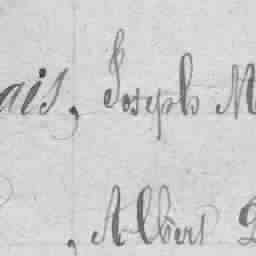 ais, Joseph M
, Albert